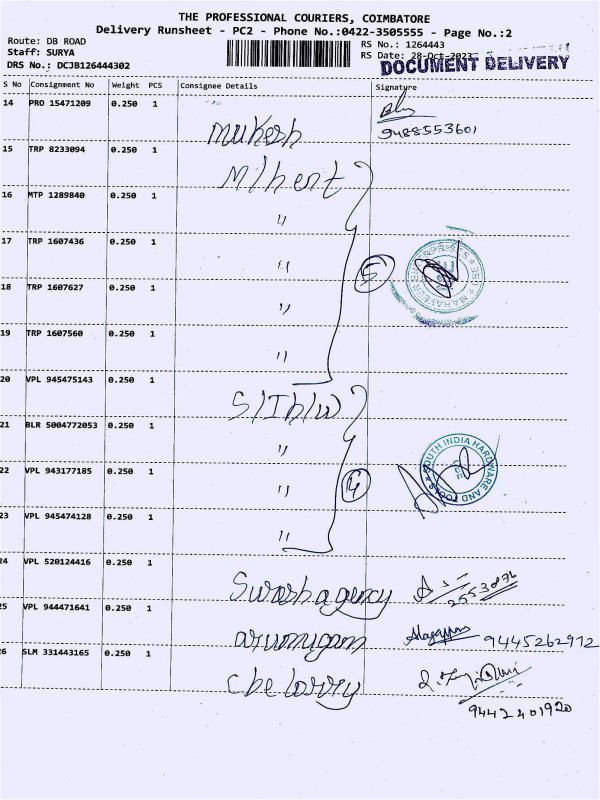 THE PROFESSIONAL COURIERS, COIMBATORE
Delivery Runsheet - PC2 - Phone No.:0422-3505555 - Page No.:2
Route: DB ROAD
Staff: SURYA
DRS No.: DCJB126444302
RS No.: 1264443
RS Date: 28-Oct-2023
DOCUMENT DELIVERY
S No Consignment No Weight PCS Consignee Details Signature
14 PRO 15471209 0.250 1
Mukesh
9488553601
15 TRP 8233094 0.250 1
M/h ent
16 MTP 1289840 0.250 1
"
17 TRP 1607436 0.250 1
"
5
18 TRP 1607627 0.250 1
"
19 TRP 1607560 0.250 1
"
20 VPL 945475143 0.250 1
S/Ih/w
21 BLR 5004772053 0.250 1
"
SOUTH INDIA HARDWARE AND TOOLS
22 VPL 943177185 0.250 1
"
4
23 VPL 945474128 0.250 1
"
24 VPL 520124416 0.250 1
Suresh agency
2553896
25 VPL 944471641 0.250 1
arumugam
Alagappan 9445262972
26 SLM 331443165 0.250 1
cbe lorry
9442401920